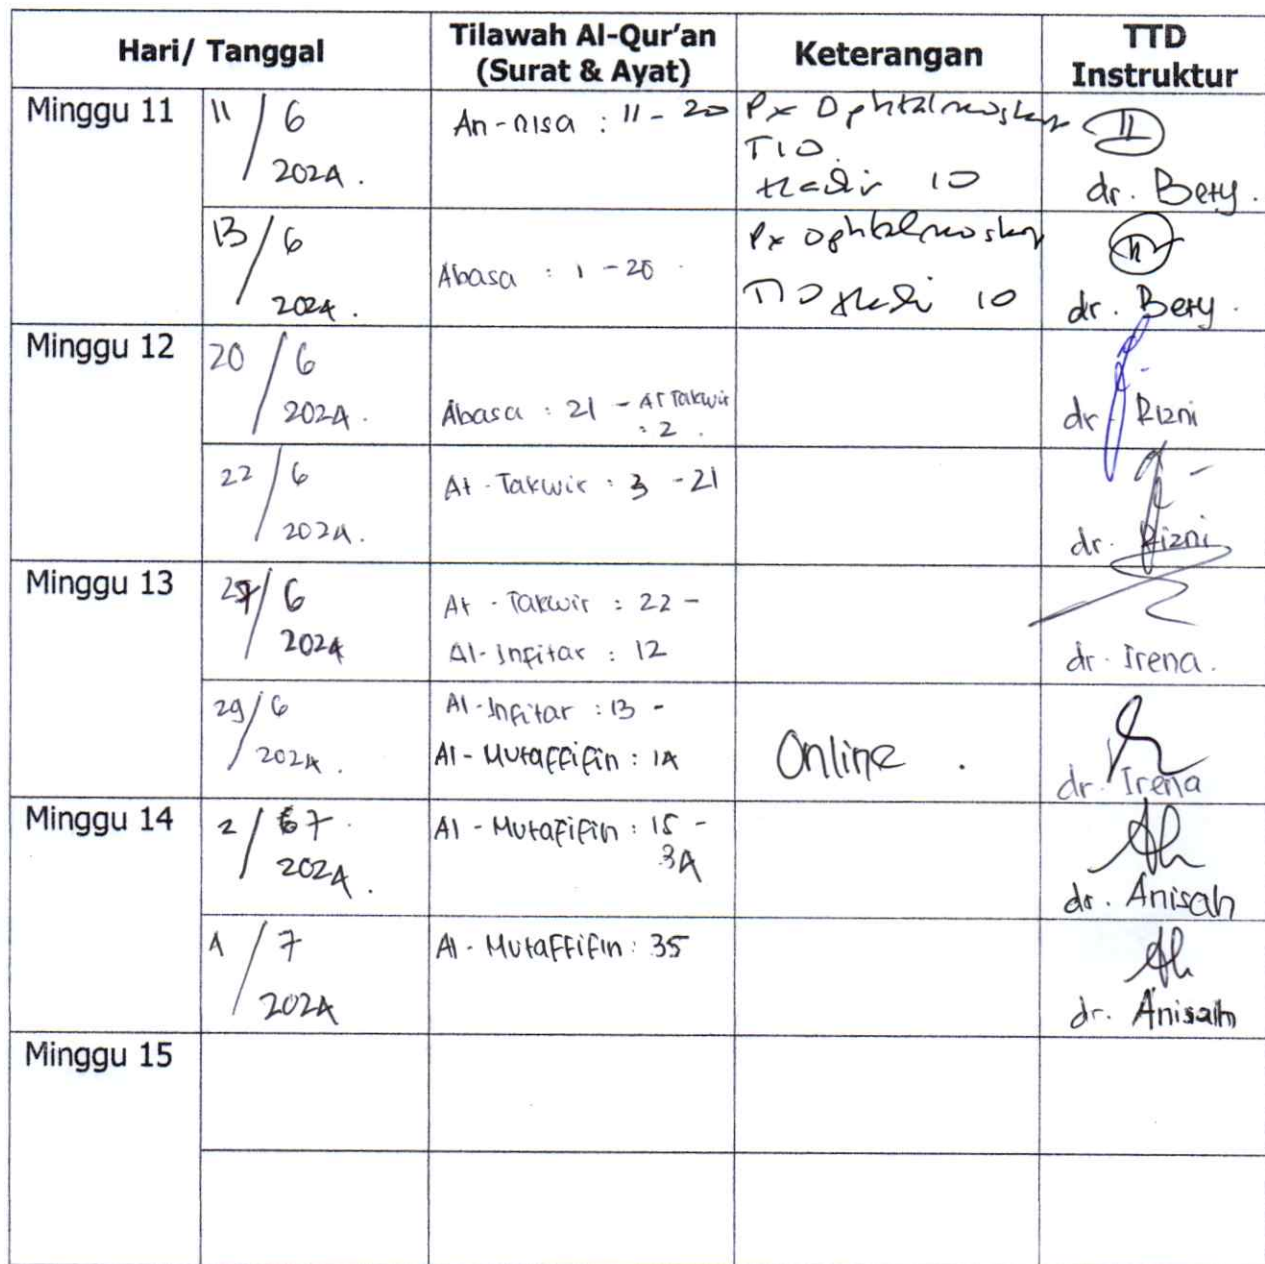 Hari/ Tanggal
Tilawah Al-Qur'an
(Surat & Ayat)
Keterangan
TTD
Instruktur
Minggu 11
11/6
2024.
An-nisa : 11 - 20
Px Ophtalmoskop
TIO.
Hadir 10
dr. Bery.
13/6
2024.
Abasa : 1 - 20.
Px Ophtalmoskop
TIO Hadir 10
dr. Bery.
Minggu 12
20/6
2024.
Abasa : 21 - At Takwir
: 2.
dr. Rizni
22/6
2024.
At - Takwir : 3 - 21
dr. Rizni
Minggu 13
27/6
2024
At - Takwir : 22 -
Al - Infitar : 12
dr. Irena.
29/6
2024.
Al - Infitar : 13 -
Al - Mutaffifin : 14
Online .
dr. Irena
Minggu 14
2/7.
2024.
Al - Mutafifin : 15 -
34
dr. Anisah
4/7
2024
Al - Mutaffifin : 35
dr. Anisah
Minggu 15